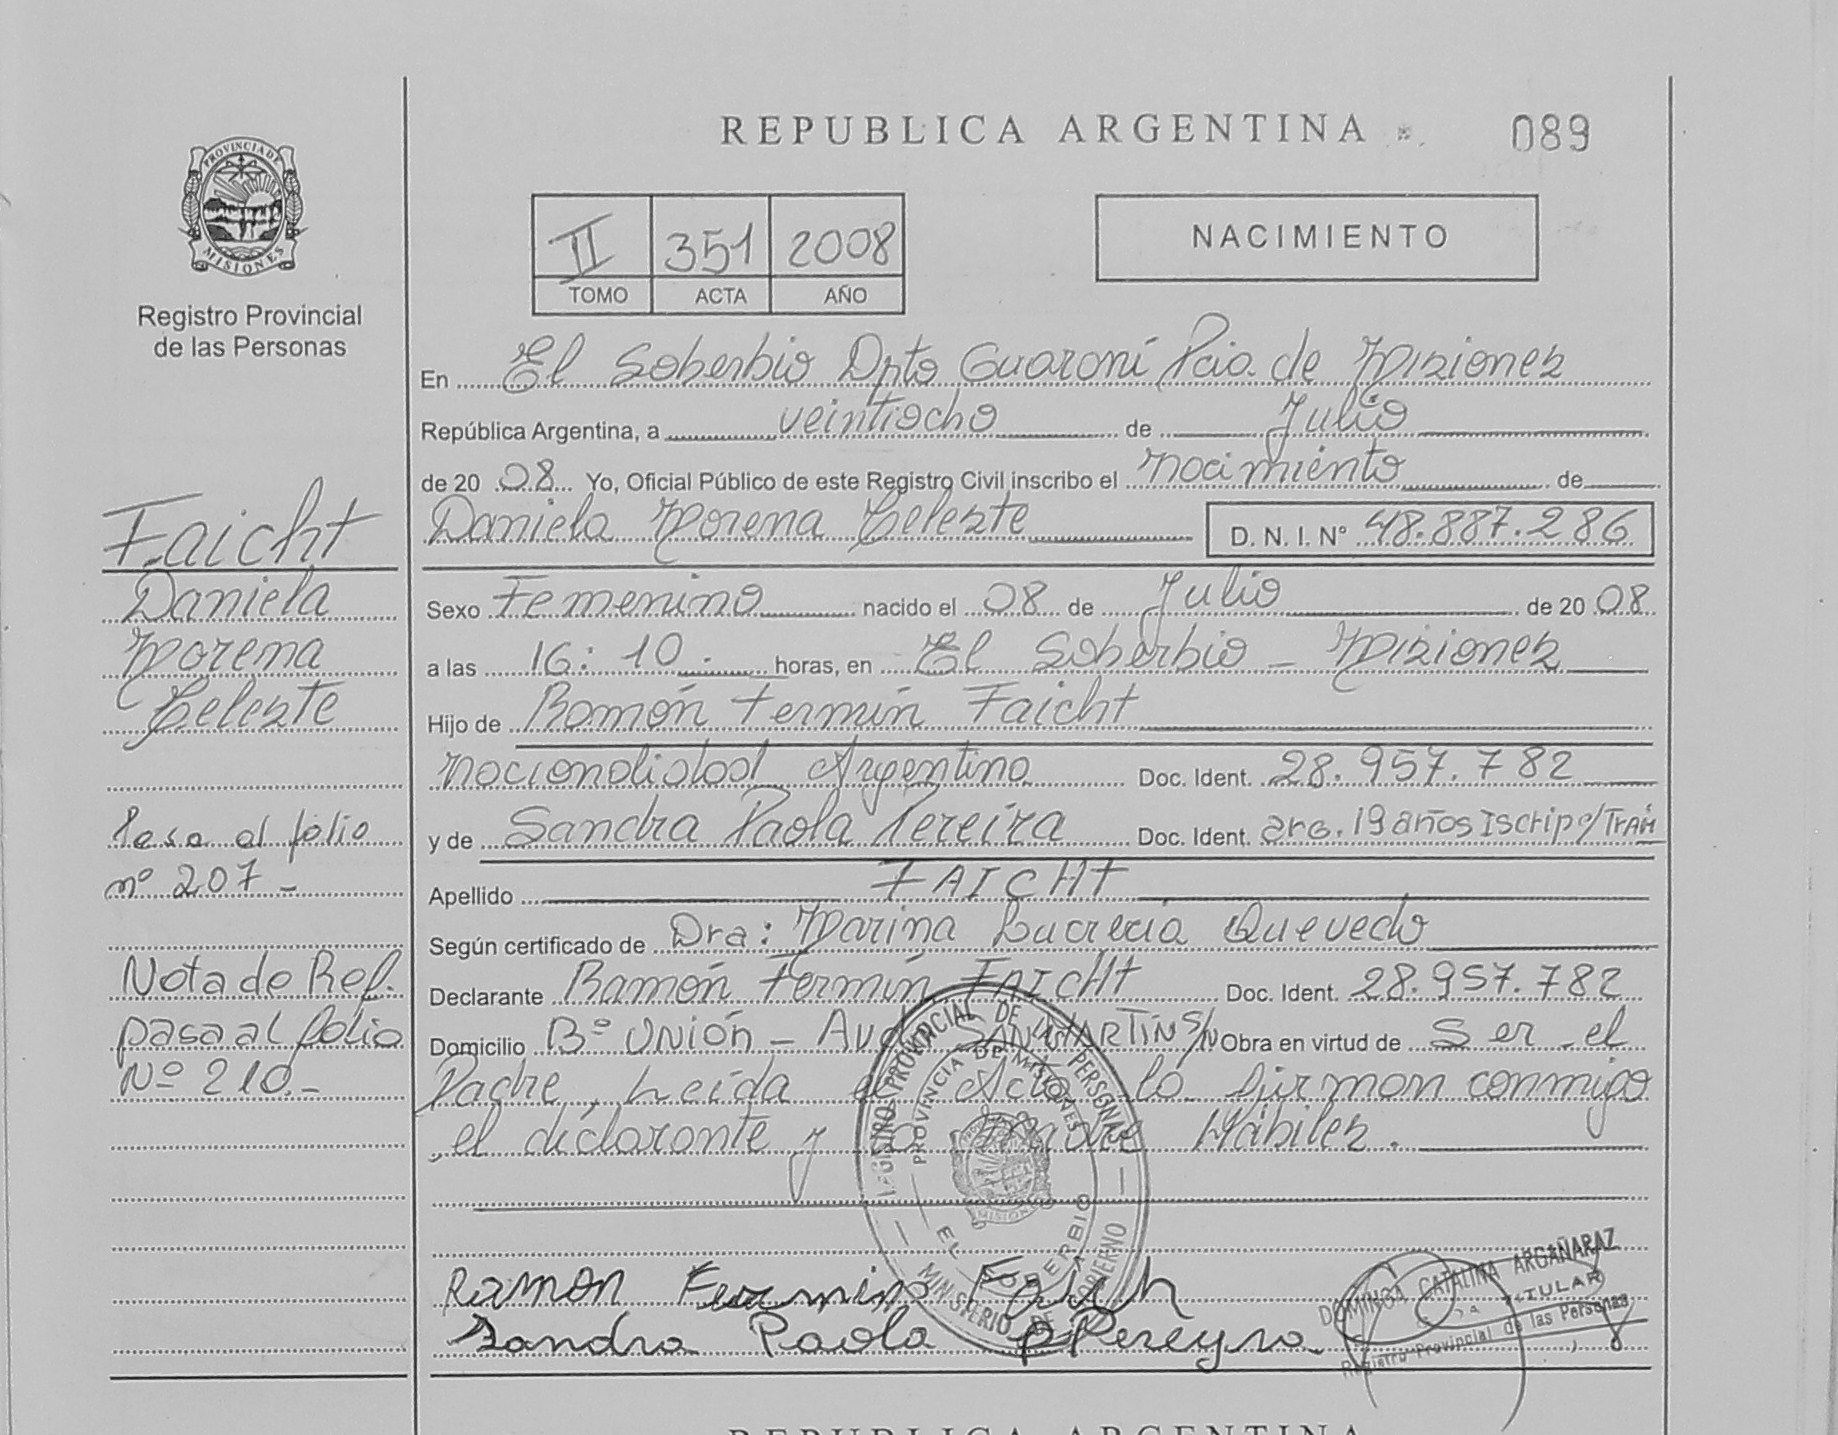 REPUBLICA ARGENTINA
089
PROVINCIA DE
MISIONES
Registro Provincial
de las Personas
II 351 2008
TOMO ACTA AÑO
NACIMIENTO
En El Soberbio Dpto Guaraní Pcia. de Misiones
República Argentina, a veintiocho de Julio
de 20 08 Yo, Oficial Público de este Registro Civil inscribo el nacimiento de
Daniela Morena Celeste D. N. I. N° 48.887.286
Sexo Femenino nacido el 08 de Julio de 20 08
a las 16:10. horas, en El Soberbio - Misiones
Hijo de Ramón Fermín Faicht
nacionalidad Argentina Doc. Ident. 28.957.782
y de Sandra Paola Pereira Doc. Ident. arg. 19 años Iscrip c/Trám
Apellido FAICHT
Según certificado de Dra: Marina Lucrecia Quevedo
Declarante Ramón Fermín FAICHT Doc. Ident. 28.957.782
Domicilio B° UNIÓN - Avda SAN MARTIN S/N Obra en virtud de Ser el
Padre, Leída el Acta la firman conmigo
el declarante y la madre Hábiles.
Faicht
Daniela
Morena
Celeste
Pasa al folio
n° 207-
Nota de Ref.
pasa al folio
N° 210.-
REGISTRO PROVINCIAL DE LAS PERSONAS
PROVINCIA DE MISIONES
MISIONES
EL SOBERBIO
MINISTERIO DE GOBIERNO
Ramon Fermino Faich
Sandra Paola Pereyra
DOMINGA CATALINA ARGAÑARAZ
TITULAR
Registro Provincial de las Personas
REPUBLICA ARGENTINA